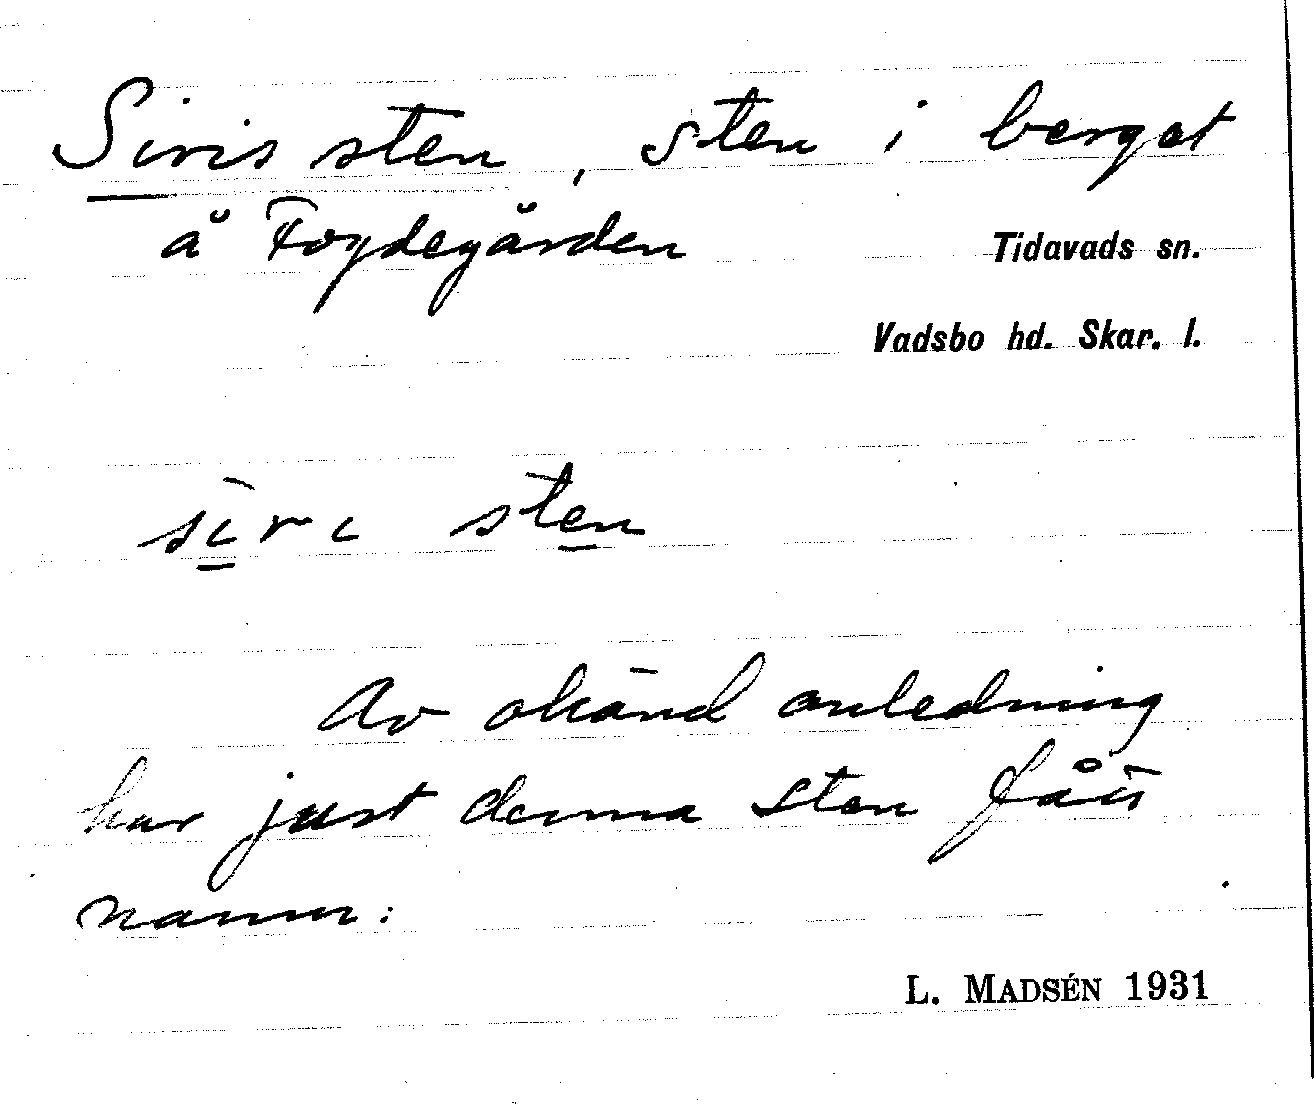 Siris sten, sten i berget
å Fogdegården
Tidavads sn.
Vadsbo hd. Skar. l.
sìri sten
Av okänd anledning
har just denna sten fått
namn.
L. MADSÉN 1931